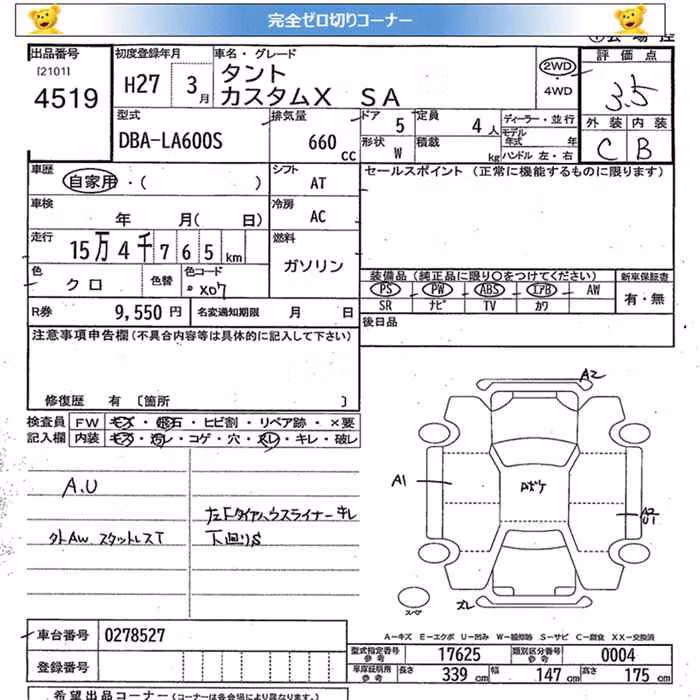 完全ゼロ切りコーナー
出品番号
[2101]
4519
初度登録年月
H27
3月
車名・グレード
タント
カスタムX SA
2WD
・
4WD
評価点
3.5
外装 内装
C B
型式
DBA-LA600S
排気量
660 cc
ドア 5
定員 4 人
形状 W
積載 kg
ディーラー・並行
モデル年式 年
ハンドル 左・右
車歴
自家用・( )
シフト
AT
セールスポイント (正常に機能するものに限ります)
車検
年 月( 日)
冷房
AC
走行
15万4千765km
燃料
ガソリン
色
クロ
色替
色コード
X07
装備品 (純正品に限り○をつけてください)
新車保証書
PS PW ABS エアB AW
SR ナビ TV カワ
有・無
R券
9,550 円
名変通知期限 月 日
後日品
注意事項申告欄 (不具合内容等は具体的に記入して下さい)
修復歴 有 [箇所 ]
検査員
記入欄
FW キズ・飛石・ヒビ割・リペア跡・×要
内装 キズ・汚レ・コゲ・穴・スレ・キレ・破レ
A.U
左Fタイヤハウスライナーキレ
外AW スタットレスT
下廻りS
A2
A1
Aボケ
A2
U1
スレ
スペア
A-キズ E-エクボ U-凹み W-補修跡 S-サビ C-腐食 XX-交換済
車台番号 0278527
登録番号
型式指定番号 参考 17625
類別区分番号 参考 0004
車庫証明用 参考 長さ 339 cm 幅 147 cm 高さ 175 cm
希望出品コーナー (コーナーは各会場により異なります。)